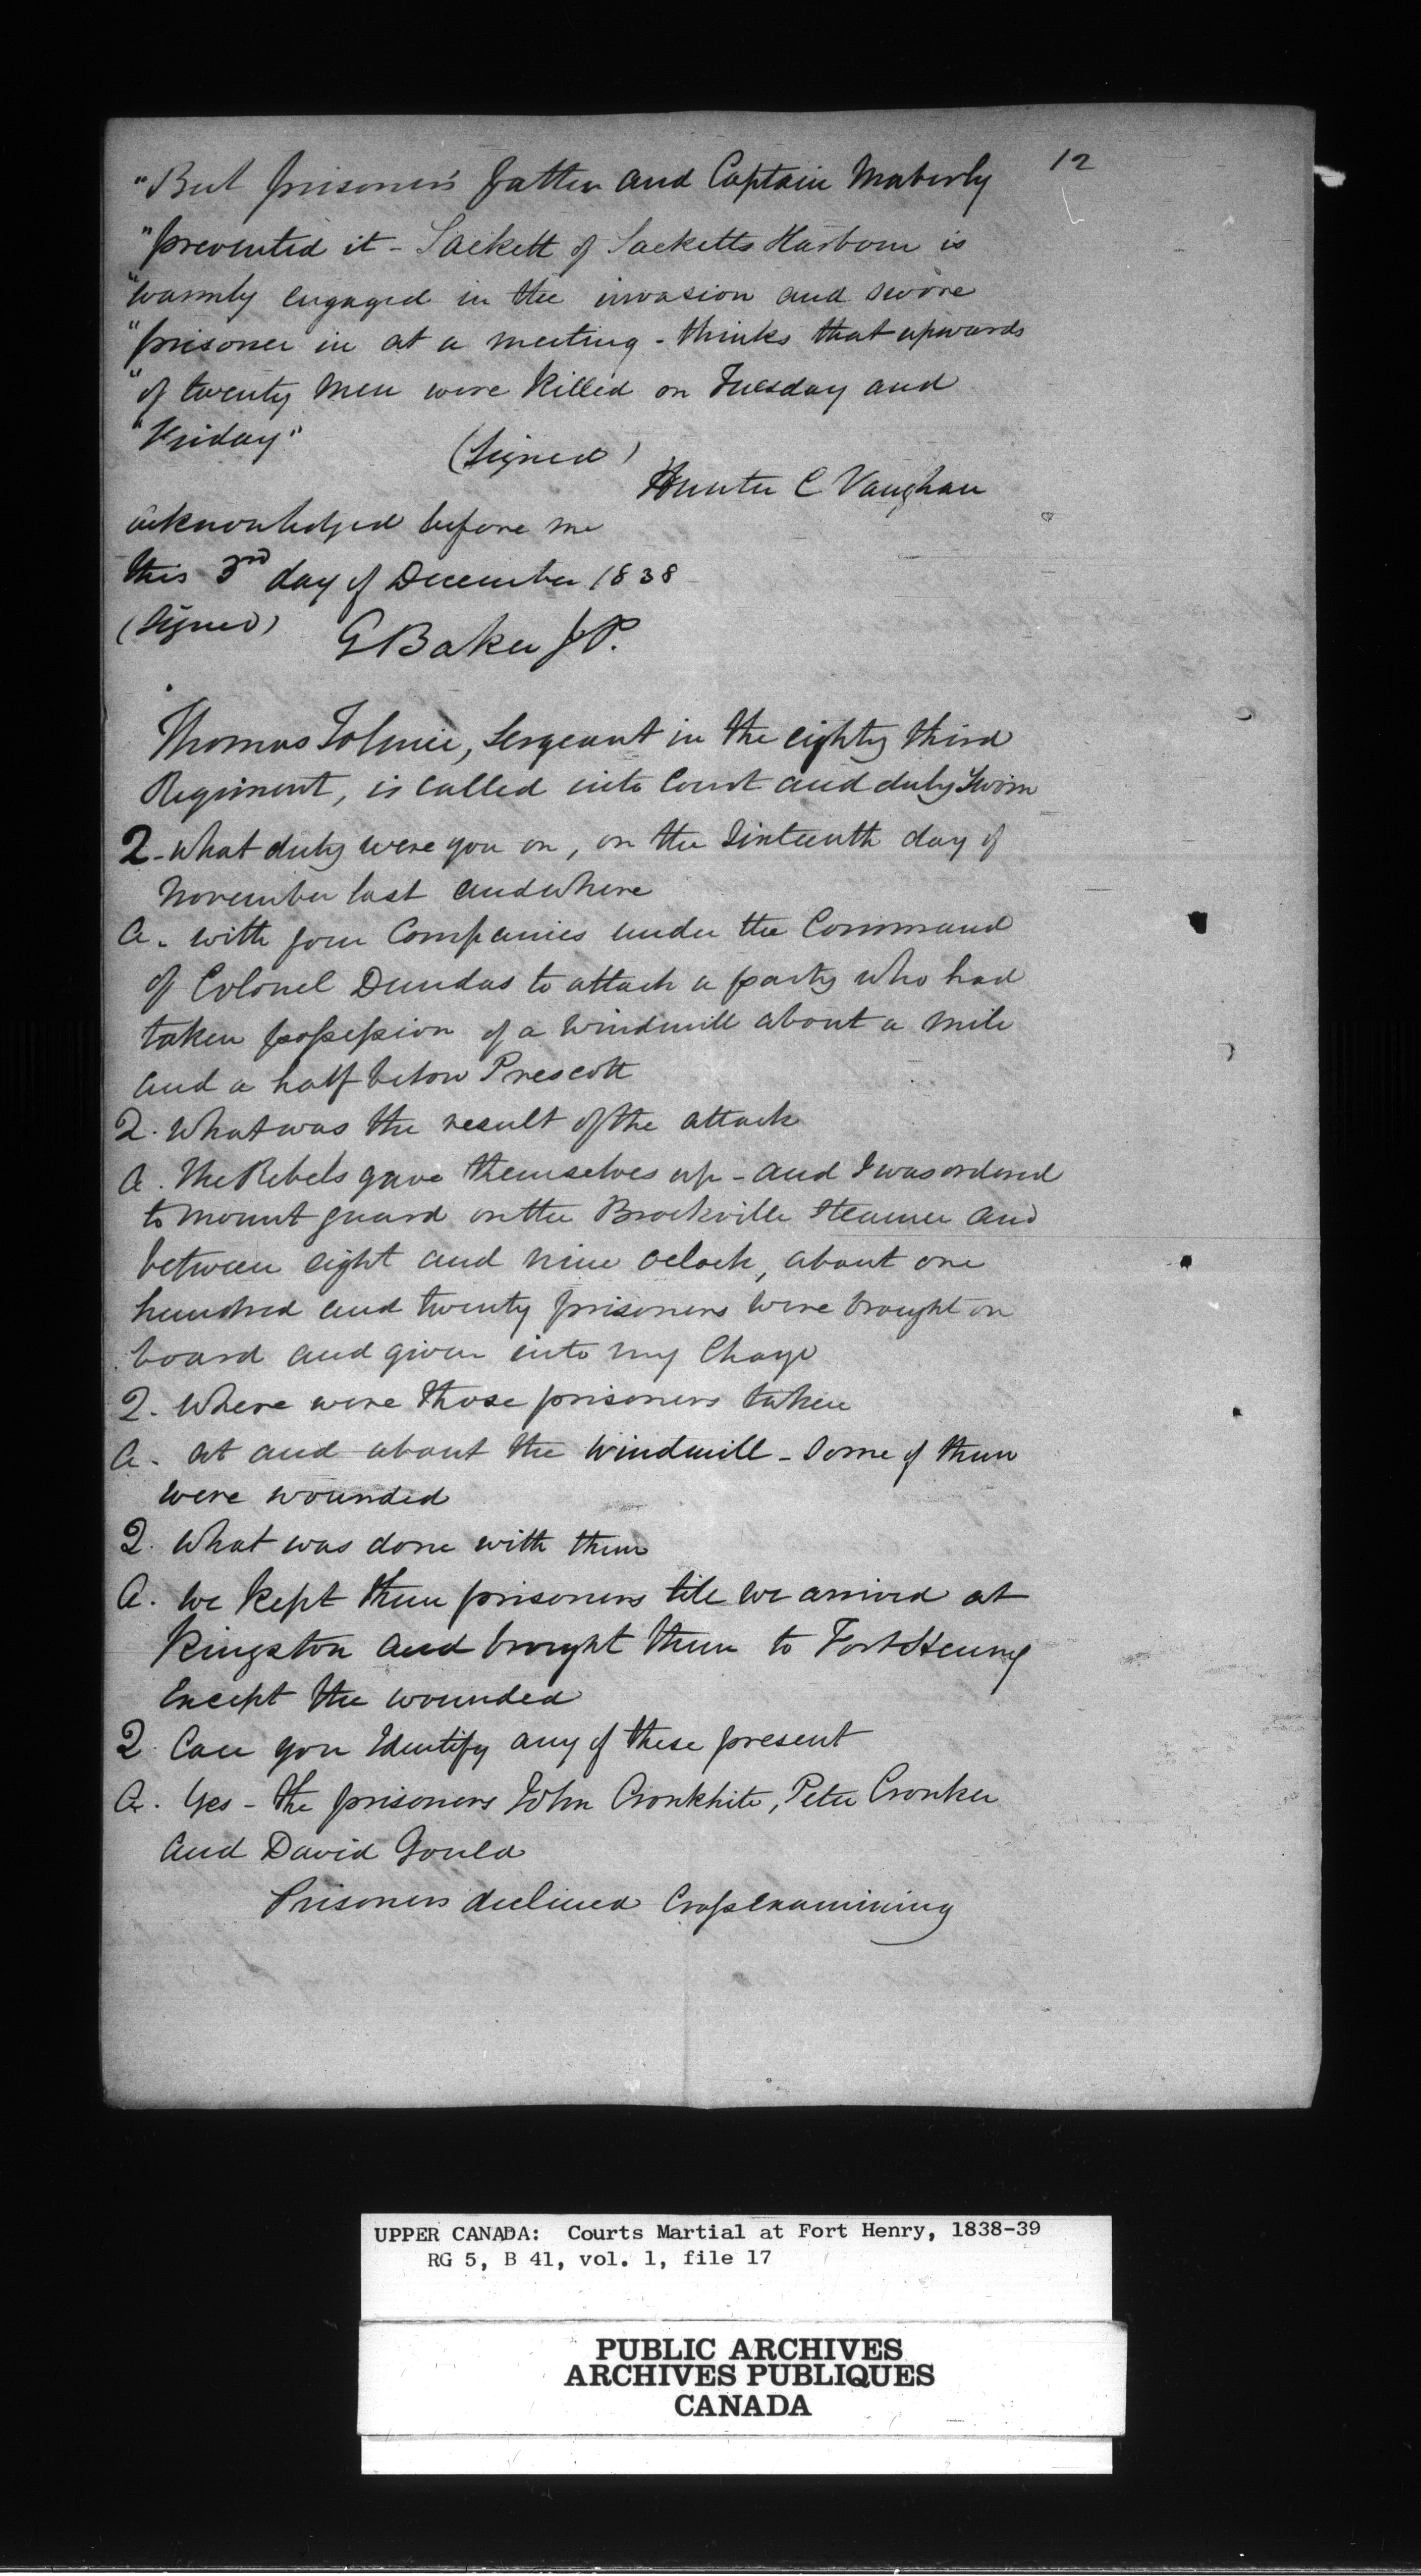 12
"But prisoner's father and Captain Maberly
"prevented it - Sackett of Sacketts Harbour is
"warmly engaged in the invasion and swore
"prisoner in at a meeting - thinks that upwards
"of twenty men were killed on Tuesday and
"Friday"
(Signed)
Hunter C Vaughan
acknowledged before me
this 3rd day of December 1838
(Signed)
G Baker J P.
Thomas Tolmie, Sergeant in the eighty third
Regiment, is called into Court and duly Sworn
Q - What duty were you on, on the Sixteenth day of
November last and where
A - with four Companies under the Command
of Colonel Dundas to attack a party who had
taken possession of a Windmill about a mile
and a half below Prescott
Q. What was the result of the attack
A. The Rebels gave themselves up - and I was ordered
to mount guard on the Brockville Steamer and
between eight and nine oclock, about one
hundred and twenty prisoners were brought on
board and given into my Charge
Q. Where were those prisoners taken
A. at and about the Windmill - Some of them
were wounded
Q. What was done with them
A. We kept them prisoners till we arrived at
Kingston and brought them to Fort Henry
Except the wounded
Q. Can you Identify any of these present
A. Yes - the prisoners John Cronkhite, Peter Cronker
and David Gould
Prisoners declined Cross examining
UPPER CANADA: Courts Martial at Fort Henry, 1838-39
RG 5, B 41, vol. 1, file 17
PUBLIC ARCHIVES
ARCHIVES PUBLIQUES
CANADA